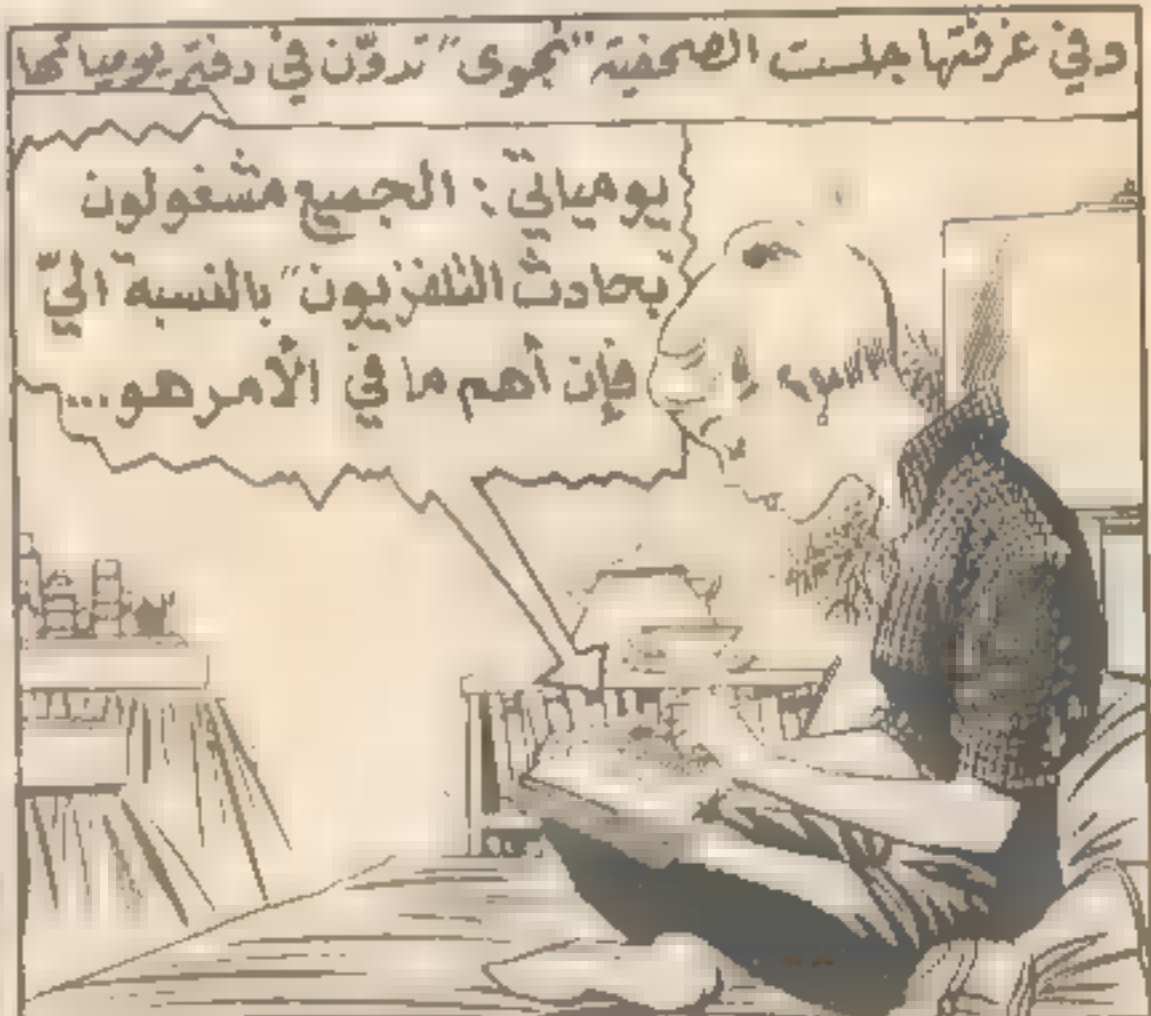 وفي غرفتها جلست الصحفية "نجوى" تدوّن في دفتر يومياتها
يومياتي : الجميع مشغولون
بحادث التلفزيون" بالنسبة اليّ
فإن أهم ما في الأمر هو...